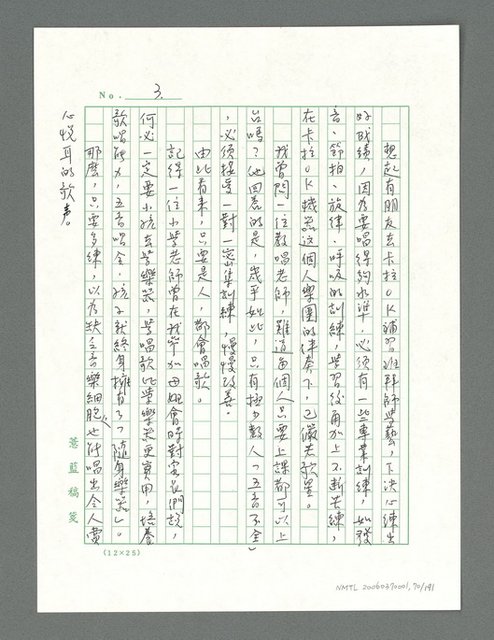 No. 3.
想起有朋友去卡拉OK補習班拜師學藝,下決心練出
好成績,因為要唱得夠水準,必須有一些專業訓練,如發
音、節拍、旋律、呼吸的訓練,學習後再加上不斷去練,
在卡拉OK機器這個人樂團的伴奏下,已儼若歌星。
我曾問一位教唱老師,難道每個人只要上課都可以上
台嗎?他回答的是,幾乎如此,只有極少數人「五音不全」
,必須接受一對一密集訓練,慢慢改善。
由此看來,只要是人,都會唱歌。
記得一位小學老師曾在我參加母姐會時對家長們說,
何必一定要小孩去學樂器,學唱歌比學樂器更實用,培養
歌唱能力,五音唱全,孩子就終身擁有了「隨身樂器」。
那麼,只要多練,以為缺乏音樂細胞,也能唱出令人賞
心悅耳的歌聲。
薏藍稿箋
(12×25)
NMTL 20060370001, 70/191